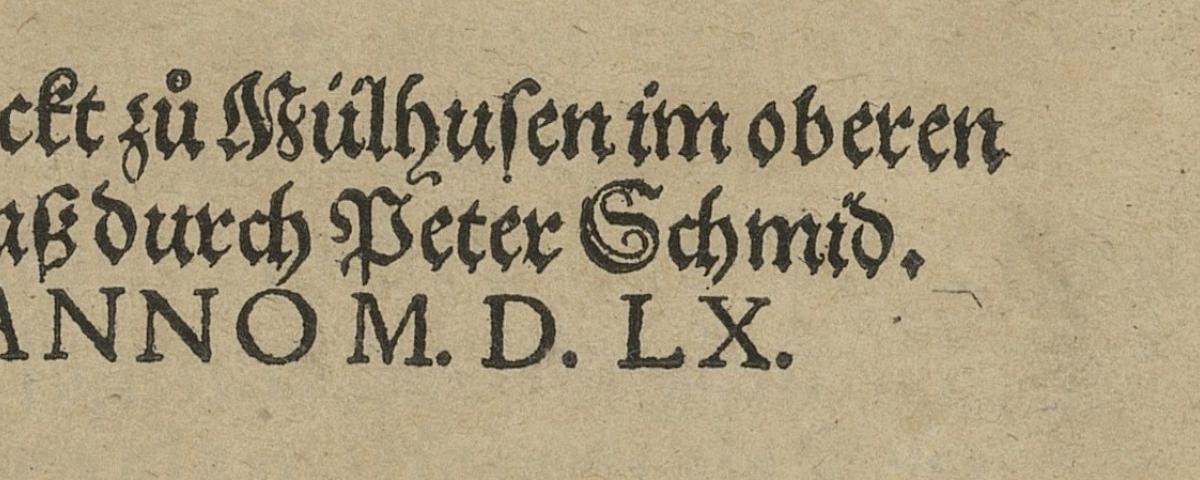 ckt zů Mülhusen im oberen
aß durch Peter Schmid.
ANNO M. D. LX.